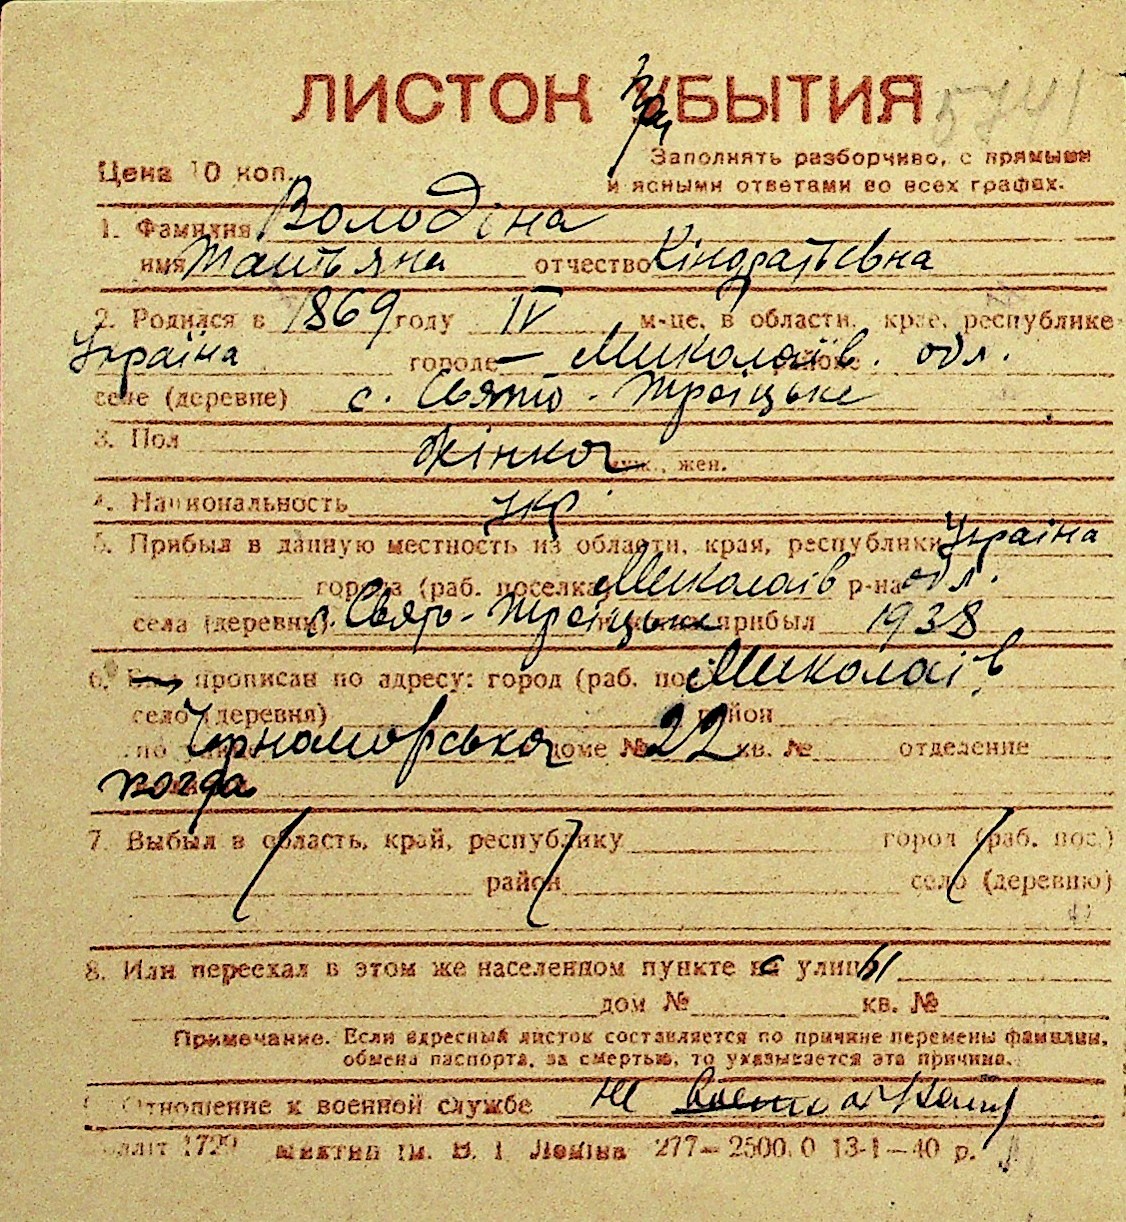 ЛИСТОК УБЫТИЯ 5741
Цена 10 коп.
Заполнять разборчиво, с прямыми
и ясными ответами во всех графах.
1. Фамилия Володіна
имя Татьяна отчество Кіндратьєвна
2. Родился в 1869 году IV м-це, в области, крае, республике
Україна городе — Миколаїв. обл.
селе (деревне) с. Свято-Троїцьке
3. Пол жінка муж., жен.
4. Национальность укр.
5. Прибыл в данную местность из области, края, республики Україна
города (раб. поселка) Миколаїв р-на обл.
села (деревни) с. Свято-Троїцьке прибыл 1938
6. прописан по адресу: город (раб. пос.) Миколаїв
село (деревня) район
по улице Чорноморська доме № 22 кв. № отделение
когда
7. Выбыл в область, край, республику город (раб. пос.)
район село (деревню)
8. Или переехал в этом же населенном пункте с улицы
дом № кв. №
Примечание. Если адресный листок составляется по причине перемены фамилии,
обмена паспорта, за смертью, то указывается эта причина.
Отношение к военной службе не
1729 ім. В. І. Леніна 277—2500.0 13-1—40 р.